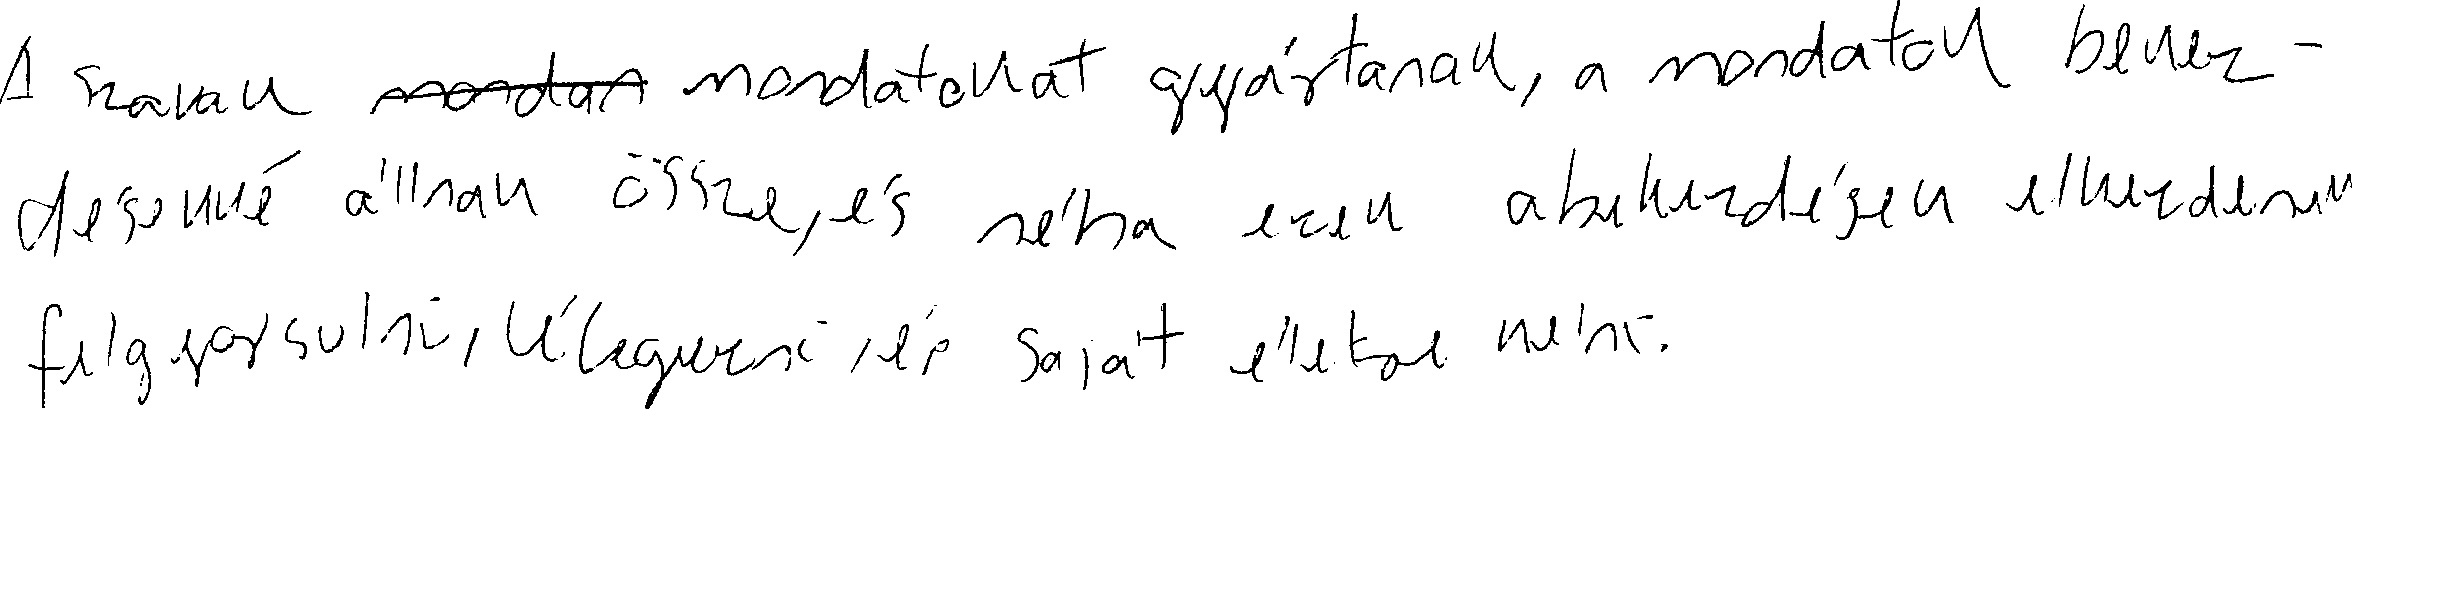 A szavak mondatokat gyártanak, a mondatok bekez-
desekké állnak össze, és néha ezek a bekezdések elkezdenek
felgyorsulni, lélegezni, és saját életre kelni.